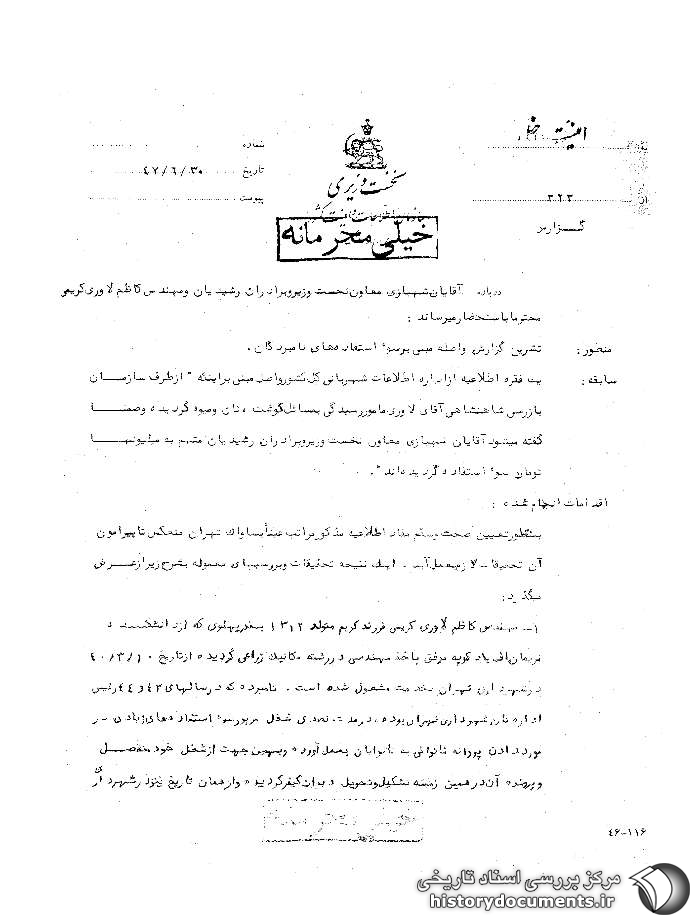 امنیت داخلی
شماره
تاریخ ۴۷/۶/۳۰
پیوست
نخست وزیری
سازمان اطلاعات و امنیت کشور
خیلی محرمانه
۳۲۳
گزارش
درباره آقایان شهبازی معاون نخست وزیر و برادران رشیدیان و مهندس کاظم لاوری کریمی
محترما باستحضار میرساند :
منظور : تشریح گزارش واصله مبنی بر سوء استفاده های نامبردگان .
سابقه : یک فقره اطلاعیه از اداره اطلاعات شهربانی کل کشور واصل مبنی بر اینکه " از طرف سازمان
بازرسی شاهنشاهی آقای لاوری مامور رسیدگی بمسائل گوشت ، نان و میوه گردیده و ضمنا
گفته میشود آقایان شهبازی معاون نخست وزیر و برادران رشیدیان متهم به میلیونها
تومان سوء استفاده گردیده اند " .
اقدامات انجام شده :
بمنظور تعیین صحت و سقم مفاد اطلاعیه مذکور مراتب عینا بساواک تهران منعکس تا پیرامون
آن تحقیقات لازم بعمل آید . اینک نتیجه تحقیقات و بررسیهای معموله بشرح زیر از عرض
میگذرد :
۱- مهندس کاظم لاوری کریمی فرزند کریم متولد ۱۳۱۲ بندر پهلوی که از دانشکده
موفق باخذ مهندسی در رشته مکانیک زراعی گردیده از تاریخ ۴۰/۳/۱۰
در شهرداری تهران بخدمت مشغول شده است . نامبرده که در سالهای ۴۳ و ۴۴ رئیس
اداره نان شهرداری تهران بوده ، در مدت تصدی شغل مزبور سوء استفاده های زیادی در
مورد دادن پروانه نانوائی به نانوایان بعمل آورده و بهمین جهت از شغل خود منفصل
و پرونده آن در همین زمینه تشکیل و تحویل دیوان کیفر گردیده و از همان تاریخ نیز در شهرداری
۴۶-۱۱۶
مرکز بررسی اسناد تاریخی
historydocuments.ir